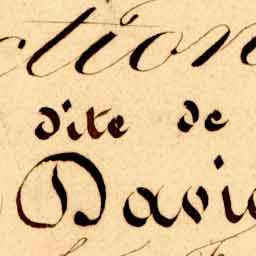 ction
dite de
Davi